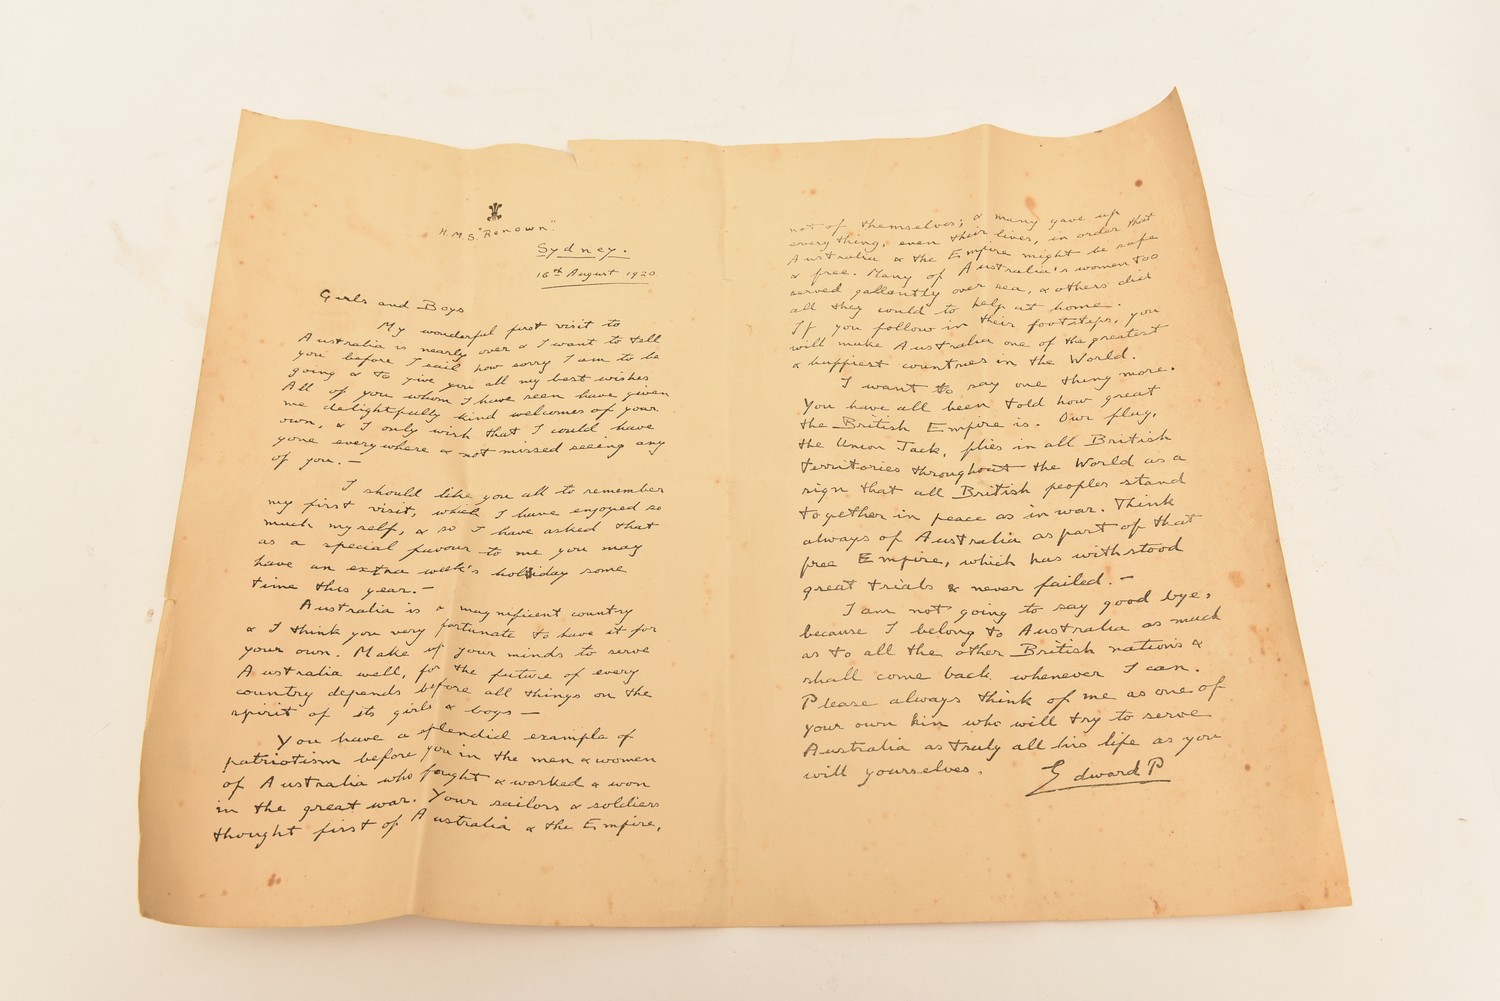 H.M.S. "Renown".
Sydney.
16th August 1920
Girls and Boys
My wonderful first visit to
Australia is nearly over & I want to tell
you before I sail how sorry I am to be
going & to give you all my best wishes
All of you whom I have seen have given
me delightfully kind welcomes of your
own, & I only wish that I could have
gone everywhere & not missed seeing any
of you. —
I should like you all to remember
my first visit, which I have enjoyed so
much myself, & so I have asked that
as a special favour to me you may
have an extra week's holiday some
time this year. —
Australia is a magnificent country
& I think you very fortunate to have it for
your own. Make up your minds to serve
Australia well, for the future of every
country depends before all things on the
spirit of its girls & boys —
You have a splendid example of
patriotism before you in the men & women
of Australia who fought & worked & won
in the great war. Your sailors & soldiers
thought first of Australia & the Empire,
not of themselves; & many gave up
everything, even their lives, in order that
Australia & the Empire might be safe
& free. Many of Australia's women too
served gallantly over sea, & others did
all they could to help at home.
If you follow in their footsteps, you
will make Australia one of the greatest
& happiest countries in the World.
I want to say one thing more.
You have all been told how great
the British Empire is. Our flag,
the Union Jack, flies in all British
territories throughout the World as a
sign that all British peoples stand
together in peace as in war. Think
always of Australia as part of that
free Empire, which has withstood
great trials & never failed. —
I am not going to say good bye,
because I belong to Australia as much
as to all the other British nations &
shall come back whenever I can.
Please always think of me as one of
your own kin who will try to serve
Australia as truly all his life as you
will yourselves.
Edward P